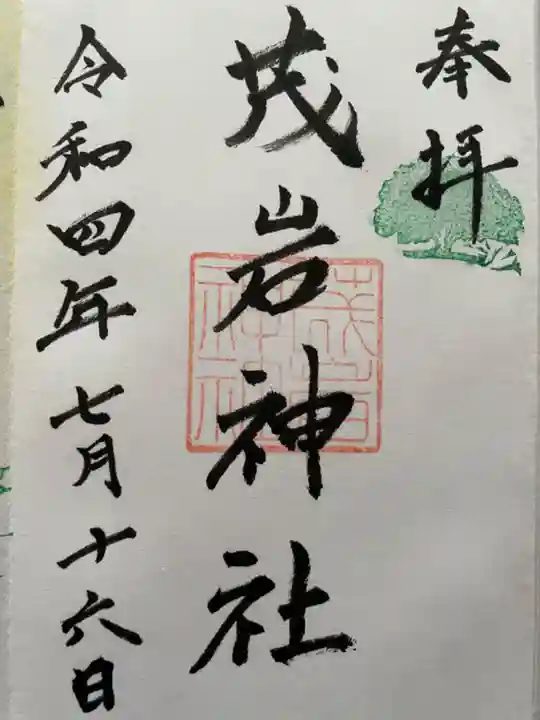 奉拝
茂岩神社
茂岩
神社
令和四年七月十六日